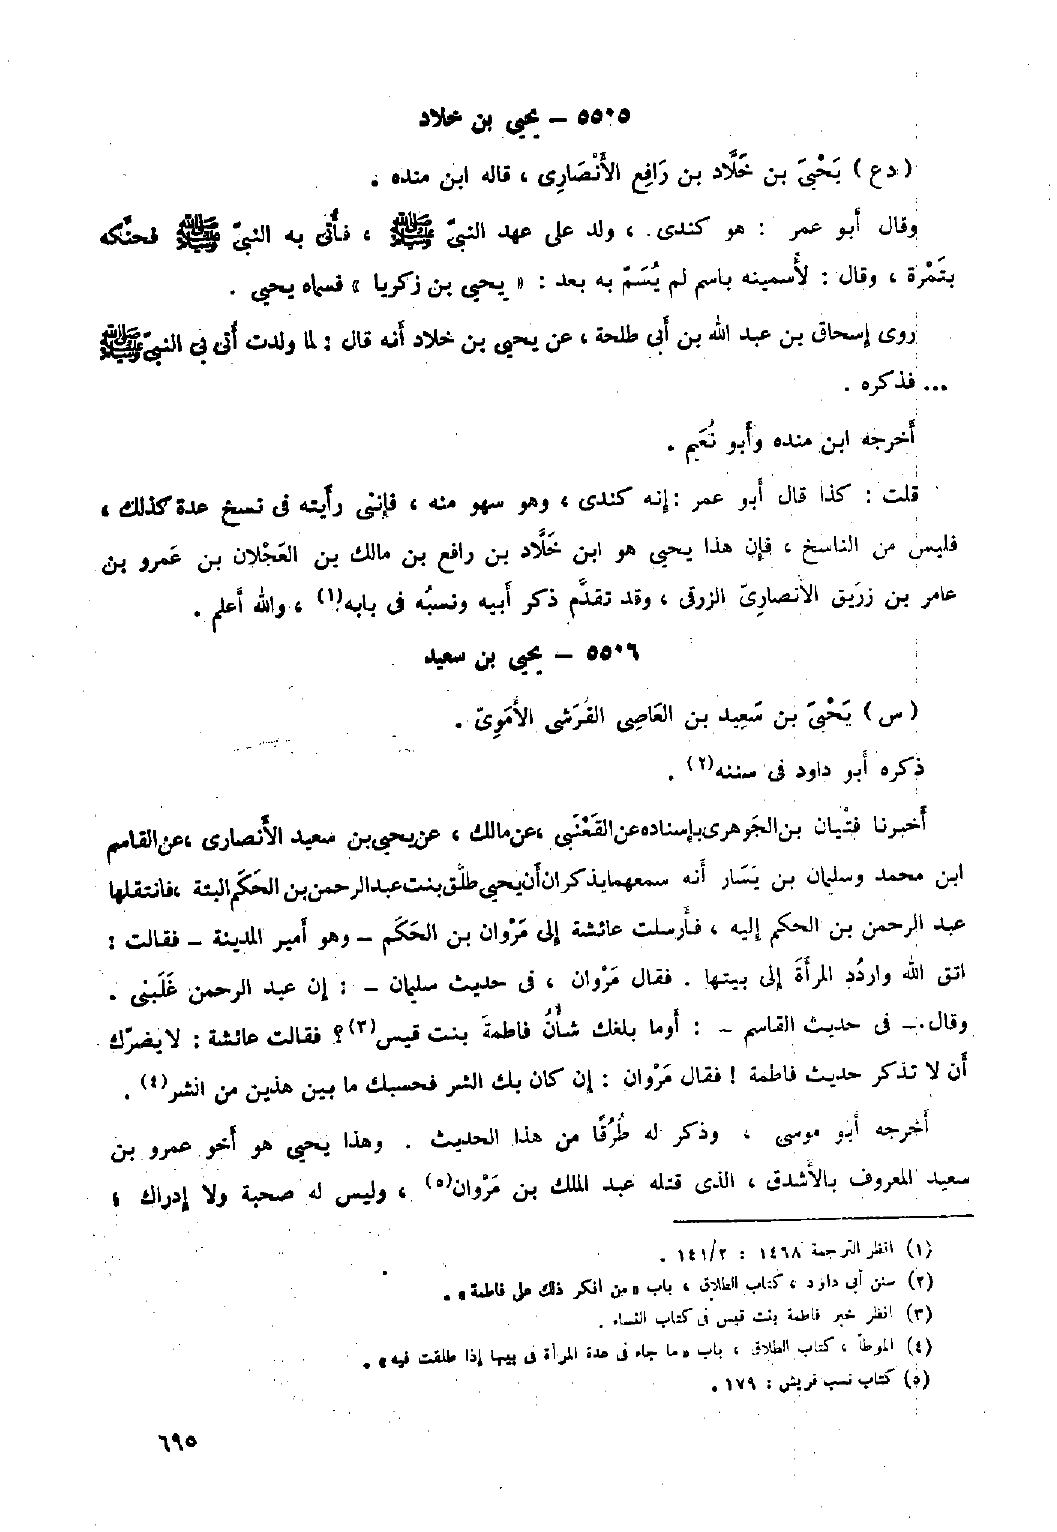 ٥٥٠٥ – يحيى بن خلاد
( دع ) يَحْيىَ بن خَلَّاد بن رَافِع الأَنْصَارِى ، قاله ابن منده .
وقال أبو عمر : هو كندى . ، ولد على عهد النبيّ ﷺ ، فأُتى به النبيّ ﷺ فحنَّكه
بتَمْرة ، وقال : لأُسمينه باسم لم يُسَمّ به بعد : « يحيى بن زكريا » فسماه يحيى .
روى إسحاق بن عبد الله بن أبي طلحة ، عن يحيى بن خلاد أنه قال : لما ولدت أُتى بى النبيّ ﷺ
... فذكره .
أخرجه ابن منده وأبو نُعَيم .
قلت : كذا قال أبو عمر : إنه كندى ، وهو سهو منه ، فإننى رأيته فى نسخ عدة كذلك ،
فليس من الناسخ ، فإن هذا يحيى هو ابن خَلَّاد بن رافع بن مالك بن العَجْلان بن عَمرو بن
عامر بن زريَق الأنصارىّ الزرقى ، وقد تقدَّم ذكر أبيه ونسبُه فى بابه(١) ، والله أعلم .
٥٥٠٦ – يحيى بن سعيد
( س ) يَحْيىَ بن سَعِيد بن العَاصِى القُرَشى الأُمَوِىّ .
ذكره أبو داود فى سننه(٢) .
أخبرنا فِتْيان بن الجَوهرى بإسناده عن القَعْنَبى ، عن مالك ، عن يحيى بن سعيد الأنصارى ، عن القاسم
ابن محمد وسليمان بن يَسَار أنه سمعهما يذكران أن يحيى طلَّق بنت عبد الرحمن بن الحَكَم البتة ، فانتقلها
عبد الرحمن بن الحكم إليه ، فأرسلت عائشة إلى مَرْوان بن الحَكَم – وهو أمير المدينة – فقالت :
اتق الله واردُد المرأة إلى بيتها . فقال مَرْوان ، فى حديث سليمان – : إن عبد الرحمن غَلَبنى .
وقال – فى حديث القاسم – : أوما بلغك شأنُ فاطمةَ بنت قيس(٣)؟ فقالت عائشة : لا يضرّك
أن لا تذكر حديث فاطمة ! فقال مَرْوان : إن كان بك الشر فحسبك ما بين هذين من الشر(٤) .
أخرجه أبو موسى ، وذكر له طُرُقًا من هذا الحديث . وهذا يحيى هو أخو عمرو بن
سعيد المعروف بالأشدق ، الذى قتله عبد الملك بن مَرْوان(٥) ، وليس له صحبة ولا إدراك ؛
(١) انظر الترجمة ١٤٦٨ : ١٤١/٢ .
(٢) سنن أبى داود ، كتاب الطلاق ، باب « من انكر ذلك على فاطمة » .
(٣) انظر خبر فاطمة بنت قيس فى كتاب النساء .
(٤) الموطأ ، كتاب الطلاق ، باب « ما جاء فى عدة المرأة فى بيتها إذا طلقت فيه » .
(٥) كتاب نسب قريش : ١٧٩ .
٦٩٥